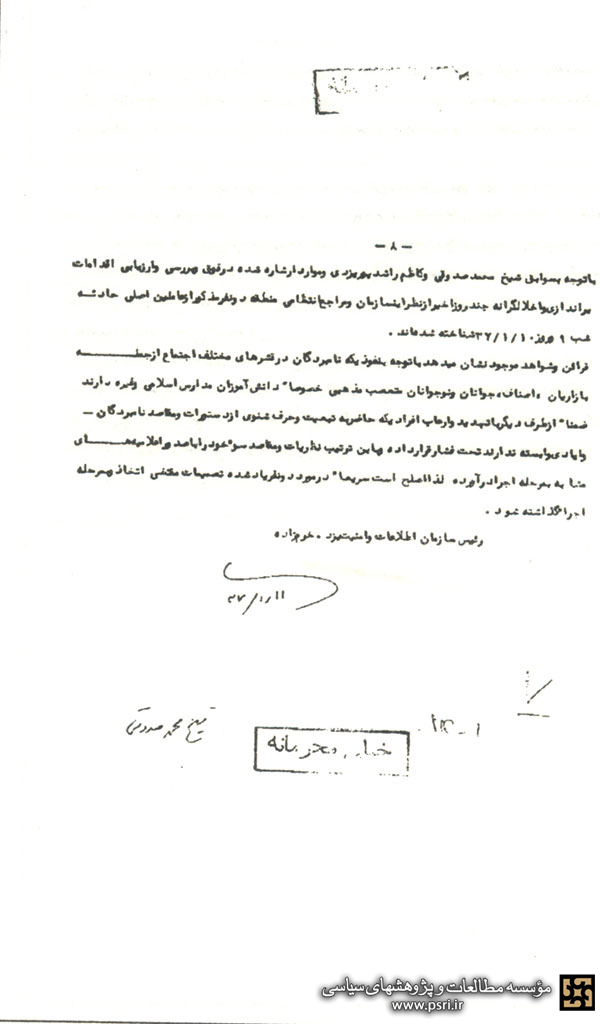 -۸-
باتوجه بسوابق شیخ محمد صدوقی وکاظم راشد پوریزدی وموارد ارشاره شده درفوق بررسی وارزیابی اقدامات
براندازی واخلالگرانه چندروزاخیرازنظراینسازمان ومراجع انتظامی منطقه دونفرمذکورازعاملین اصلی حادثه
شب ۹ وروز ۳۷/۱/۱۰ شناخته شده‌اند .
قرائن وشواهد موجود نشان میدهد باتوجه بنفوذیکه نامبردگان درقشرهای مختلف اجتماع ازجمله
بازاریان ، اصناف، جوانان ونوجوانان متعصب مذهبی خصوصا" دانش‌آموزان مدارس اسلامی وغیره دارند
ضمنا" ازطرف دیگرباتهدید وارعاب افرادیکه حاضربه تبعیت وحرف شنوی ازدستورات ومقاصد نامبردگان -
وایادی وابسته ندارند تحت فشارقرارداده وباین ترتیب نظریات ومقاصد سوءخودراباصدوراعلامیه‌های
به مرحله اجرا درآورده لذااصلح است سریعا" درمورد دونفریادشده تصمیمات مقتضی اتخاذ وبمرحله
اجراگذاشته شود .
رئیس سازمان اطلاعات وامنیت یزد .
شیخ محمد صدوقی
خیلی محرمانه
مؤسسه مطالعات و پژوهشهای سیاسی
www.psri.ir